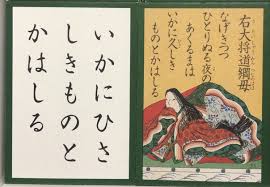 右大将道綱母
なげきつつ
ひとりぬる夜の
あくるまは
いかに久しき
ものとかはしる
いかにひさ
しきものと
かはしる